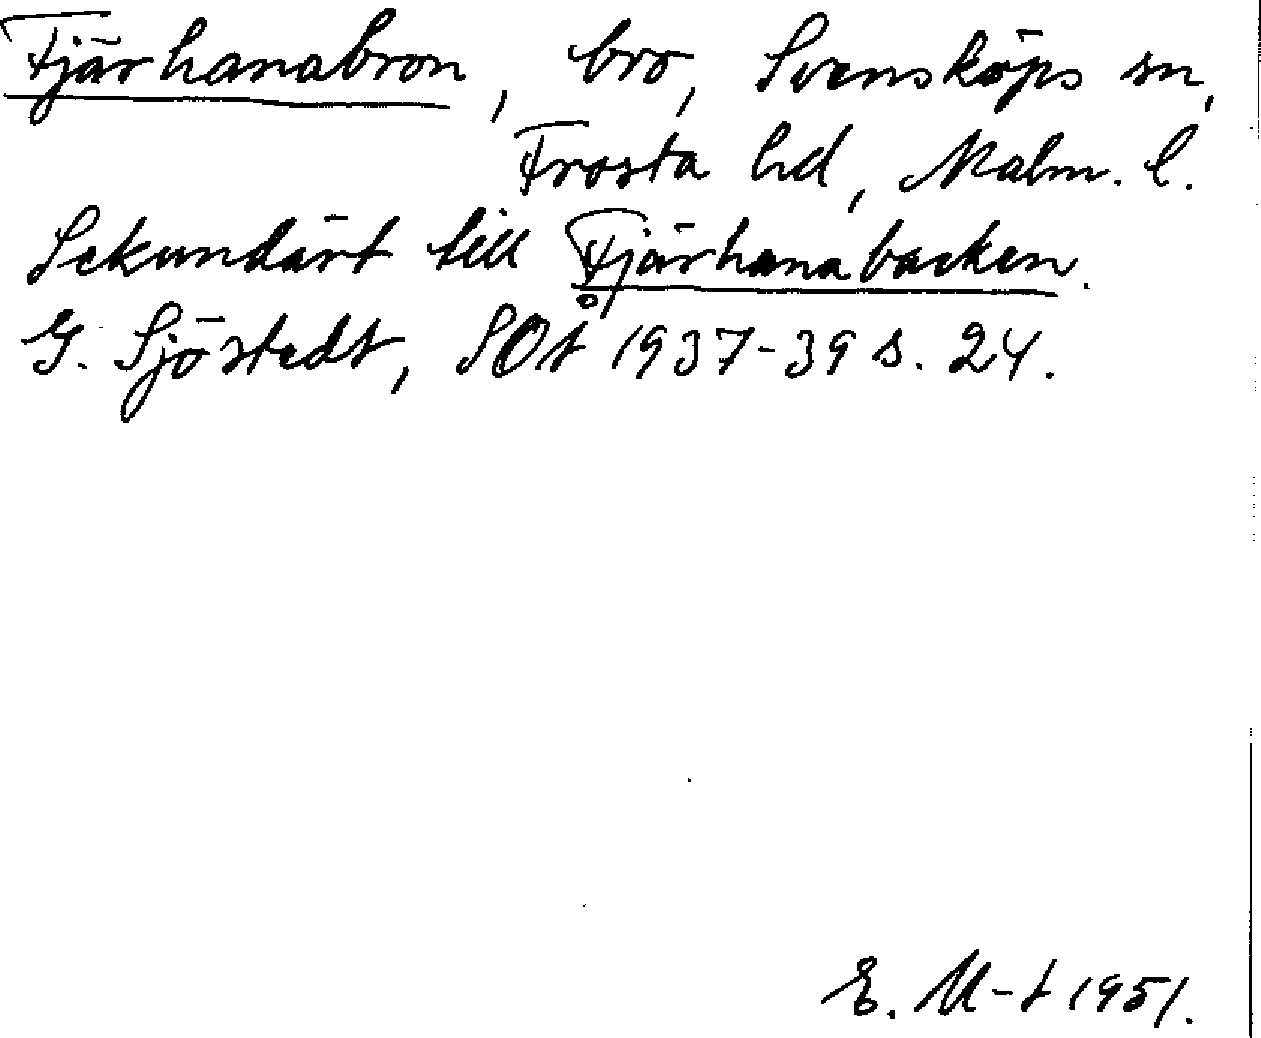 Fjärhanabron, bro, Svensköps sn,
Frosta hd, Malm. l.
Sekundärt till Fjärhanabacken.
G. Sjöstedt, SOÅ 1937-39 s. 24.
E. M-t 1951.